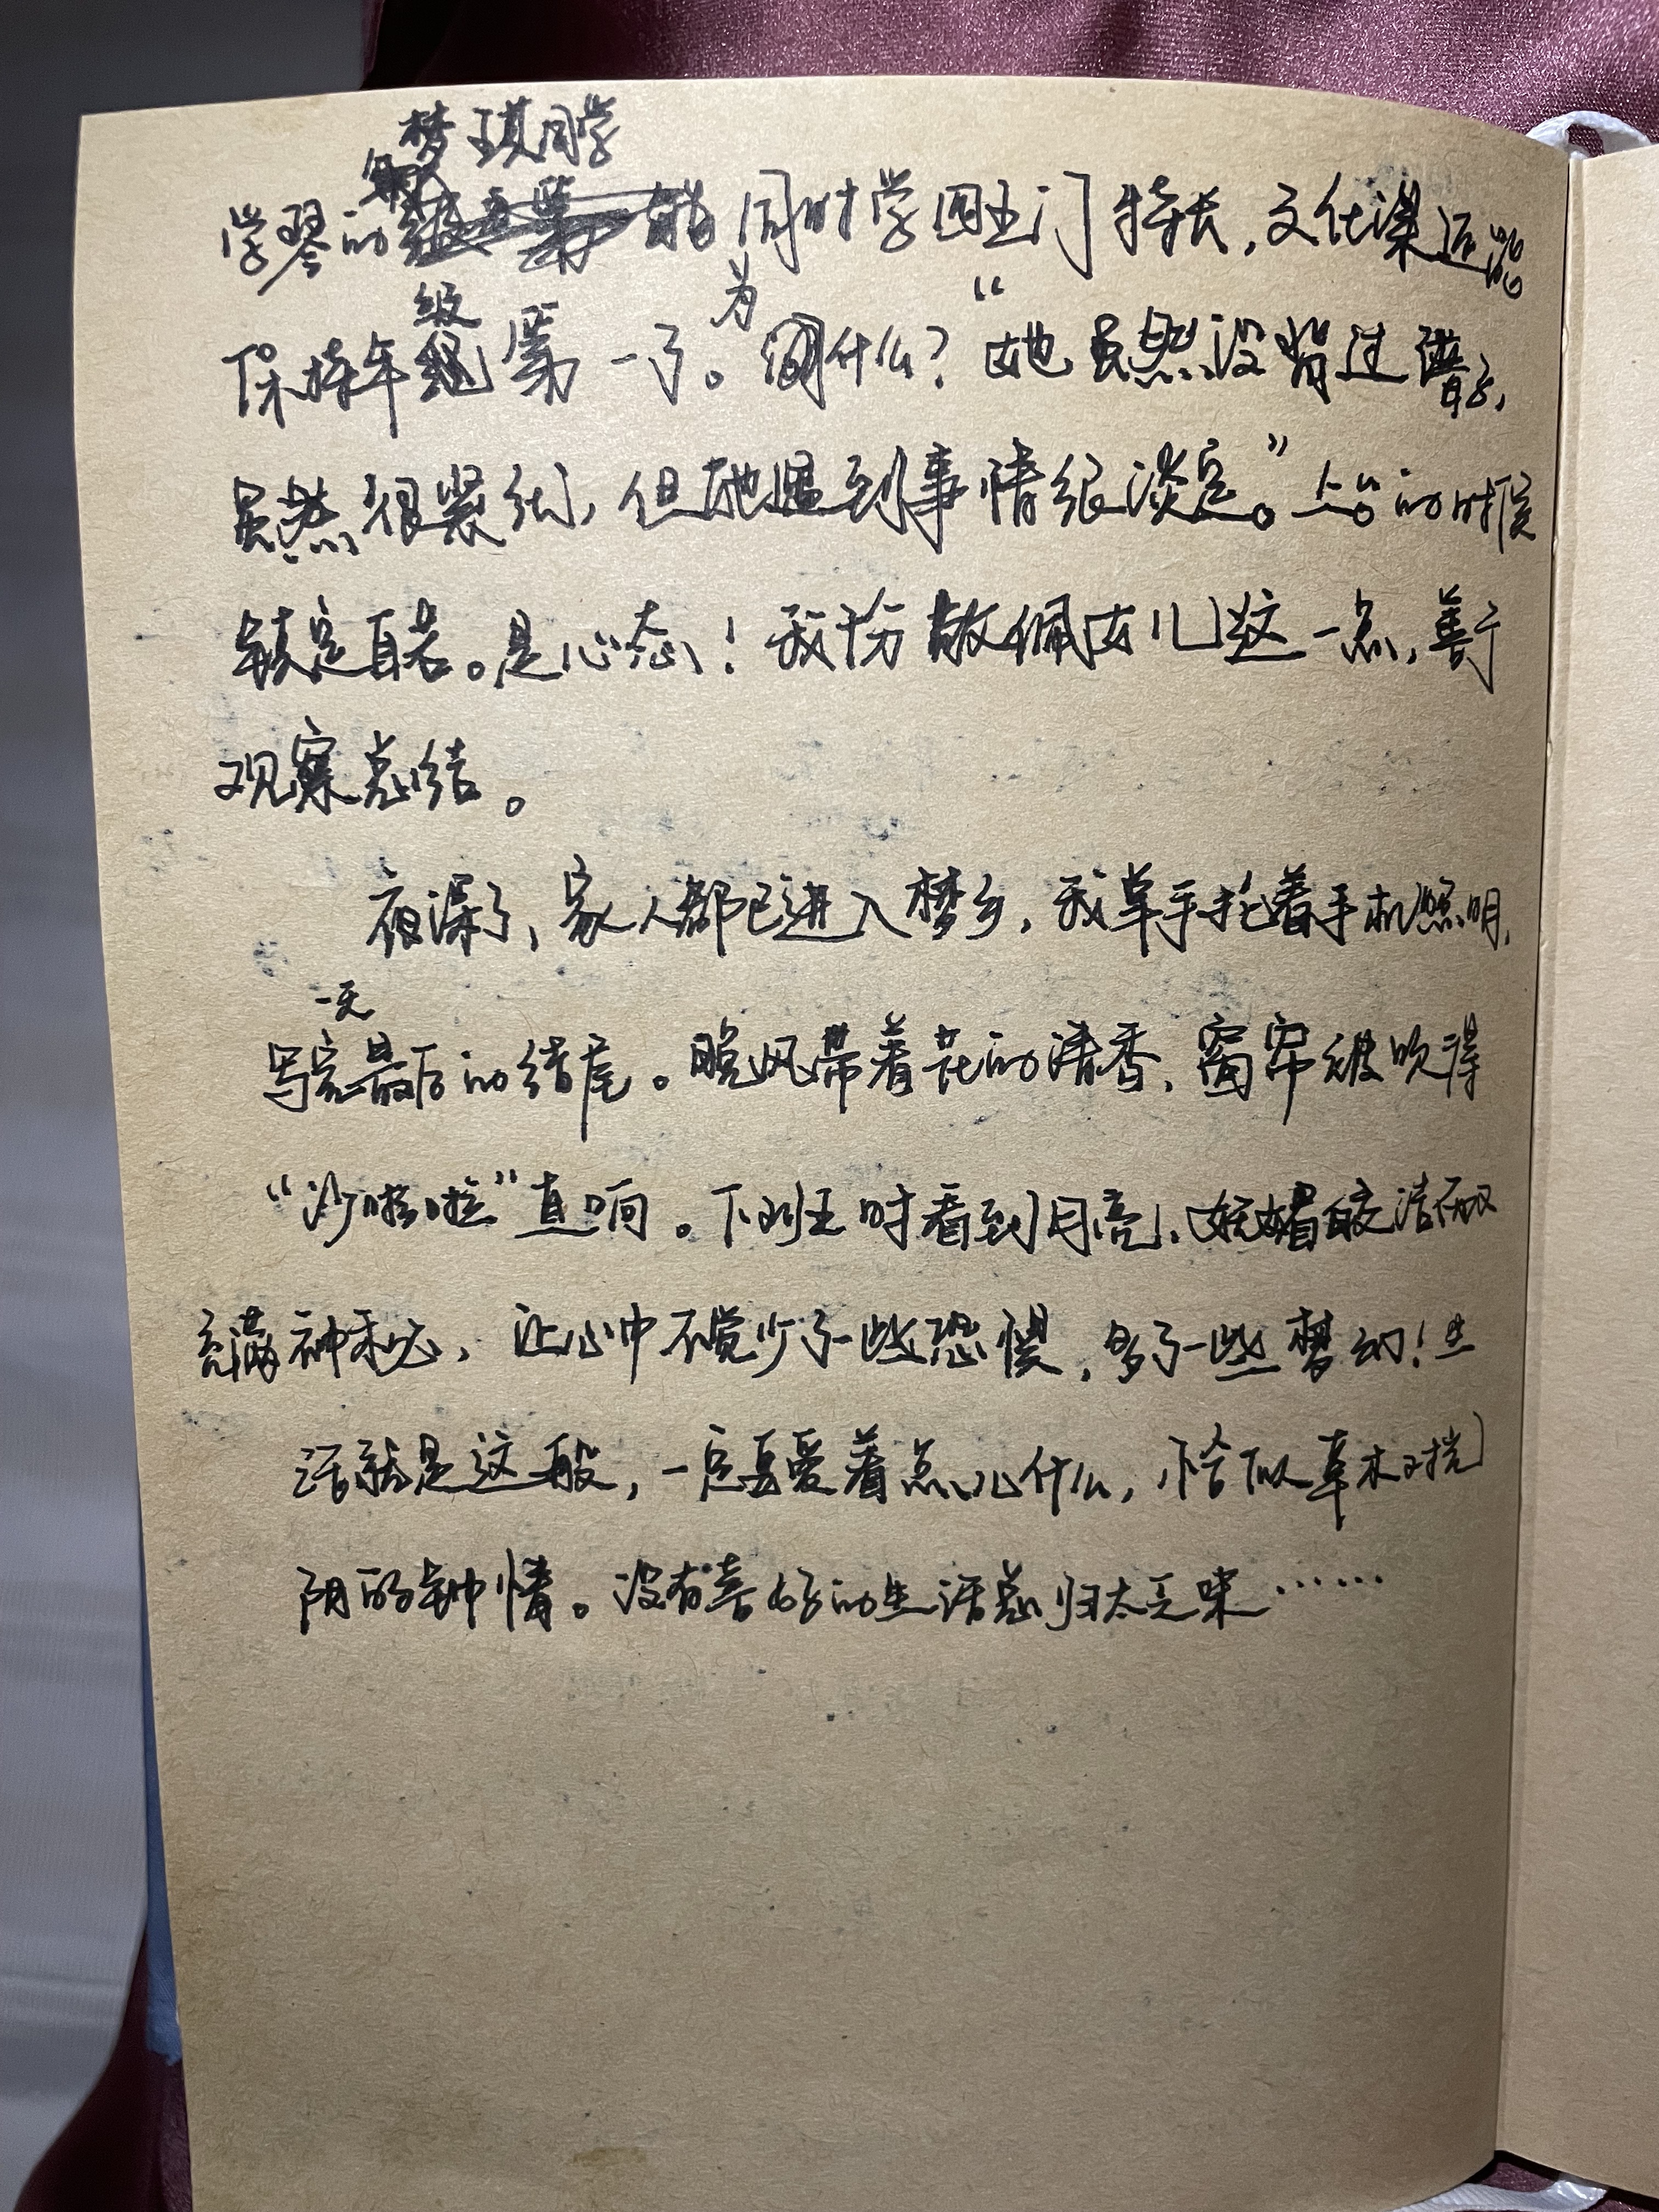 梦琪同学
学琴的 能同时学四五门特长,文化课还能
保持年级第一了。为什么?“她虽然没背过谱子,
虽然很紧张,但她遇到事情很淡定。”上台的时候
镇定自若。是心态!我十分敬佩女儿这一点,善于
观察总结。
夜深了,家人都已进入梦乡,我单手托着手机照明,
写完一天最后的结尾。晚风带着花的清香,窗帘被吹得
“沙啦啦”直响。下班时看到月亮,妩媚皎洁而又
充满神秘,让心中不觉少了一些恐惧,多了一些梦幻!生
活就是这般,一定要爱着点儿什么,恰似草木对光
阴的钟情。没有喜好的生活总归太乏味……